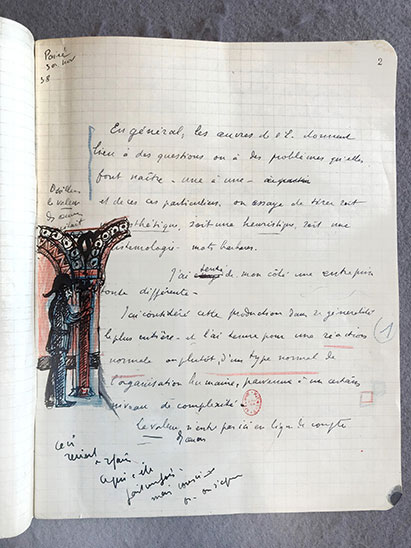 Poïé
30 nov
38
2
En général, les œuvres de l'E. donnent
lieu à des questions ou à des problèmes qu'elles
font naître - une à une -
et de ces cas particuliers, on essaye de tirer soit
esthétique, soit une heuristique, soit une
épistémologie - mots barbares.
J'ai tenté de mon côté une entreprise
toute différente -
J'ai considéré cette production dans sa généralité
la plus entière - et l'ai tenue pour une réaction
normale ou plutôt, d'un type normal de
l'organisation humaine, parvenue à un certain
niveau de complexité.
La valeur n'entre pas ici en ligne de compte
1
la valeur
des œuvres
ceci
revient
après
mais